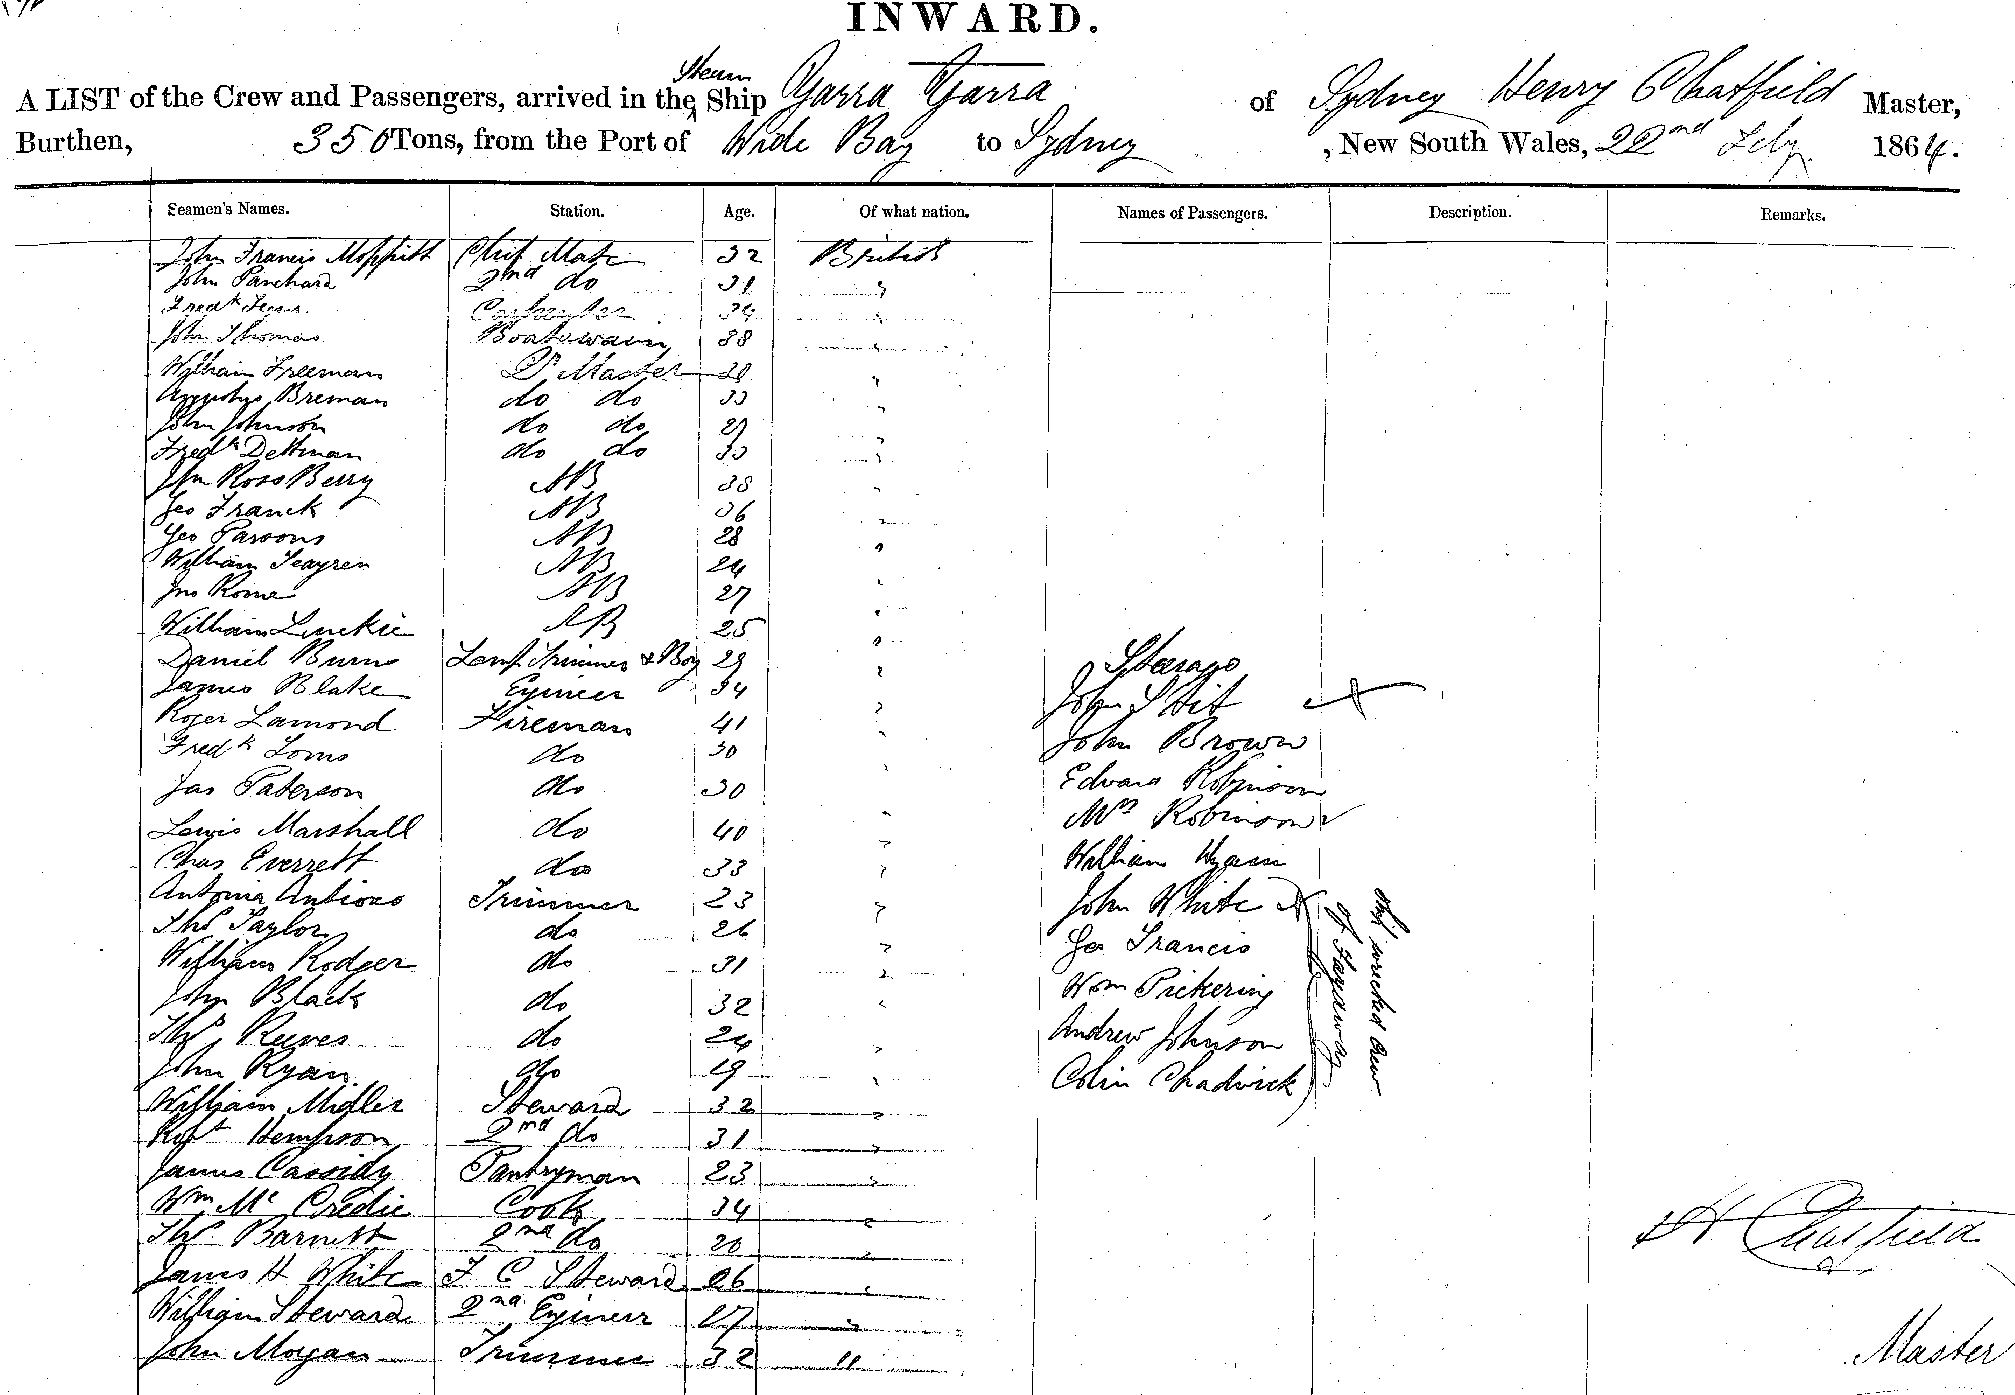 INWARD.
A LIST of the Crew and Passengers, arrived in the Steam Ship Yarra Yarra of Sydney Henry Chatfield Master,
Burthen, 350 Tons, from the Port of Wide Bay to Sydney, New South Wales, 22nd July 1864.
Seamen's Names. Station. Age. Of what nation. Names of Passengers. Description. Remarks.
John Francis Moppitt Chif Mate 32 British
John Panchard 2nd do 31 "
Fredk 34 "
John Thomas Boatswain 38 "
William Freeman Qr Master 38 "
Breman do do 33 "
John Johnson do do 29 "
Fredk Dettman do do 30 "
Jn Ross Berry AB 38 "
Geo Franck AB 36 "
Geo Parsons AB 28 "
William Seagren AB 24 "
Jno Rome AB 27 "
William Luckie AB 25 "
Daniel Burns Lamp Trimmer & Boy 29 " Steerage
James Blake Egineer 34 " John
Roger Lamond Fireman 41 " John Brown
Fredk Loms do 30 " Edward Robinson
Jas Paterson do 30 " Mrs Robinson
Lewis Marshall do 40 " William
Chas Everrett do 33 " John White
Antonia Trimmer 23 " Geo Francis
Thos Taylor do 26 " Wm Pickering
William Rodger do 31 " Andrew Johnson
John Black do 32 " Colin Chadwick
Thos Reeves do 24 "
John Ryan do 19 "
William Midler Steward 32 "
Robt Hempson 2nd do 31 "
James Cassidy Pantryman 23 "
Wm Mc Credie Cook 34 "
Thos Barnett 2nd do 20 "
James H White F C Steward 26 "
William Steward 2nd Egineer 27 "
John Morgan Trimmer 32 "
Ship wrecked crew
of
H Chatfield
Master